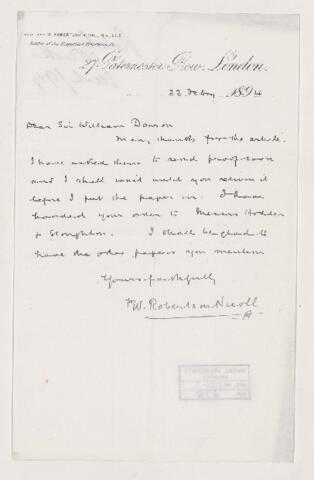 27, Paternoster Row, London.
22 Feby 1894
Dear Sir William Dawson
Many thanks for the article.
I have asked them to send proof soon
and I shall wait until you return it
before I put the paper in. I have
handed your order to Messrs Hodder
& Stoughton. I shall be glad to
have the other papers you mention
Yours faithfully
W. Robertson Nicoll